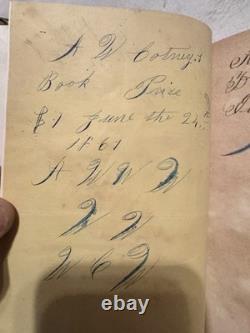 A W Cotney's
Book Price
$1 June the 24th
1861
A W W W
W W
W C W
ebay